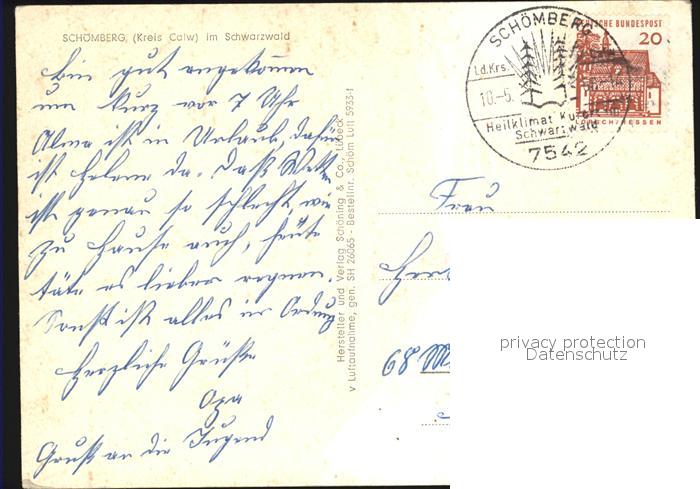 SCHÖMBERG, (Kreis Calw) im Schwarzwald
Bin gut angekommen
um kurz vor 7 Uhr
Alma ist in Urlaub, dafür
ist Helene da. Daß Wetter
ist genau so schlecht, wie
zu Hause auch, heute
täte es lieber regnen.
Sonst ist alles in Ordnung
Herzliche Grüße
Opa
Gruß an die Jugend
Hersteller und Verlag Schöning & Co., Lübeck
v Luftaufnahme, gen. SH 26065 - Bestellnr. Schöm Luft 5933-1
SCHÖMBERG
Ld.Krs.
10.-5.
Heilklimat Kuro
Schwarzwald
7542
DEUTSCHE BUNDESPOST
20
LORSCH/HESSEN
Frau
68
privacy protection
Datenschutz